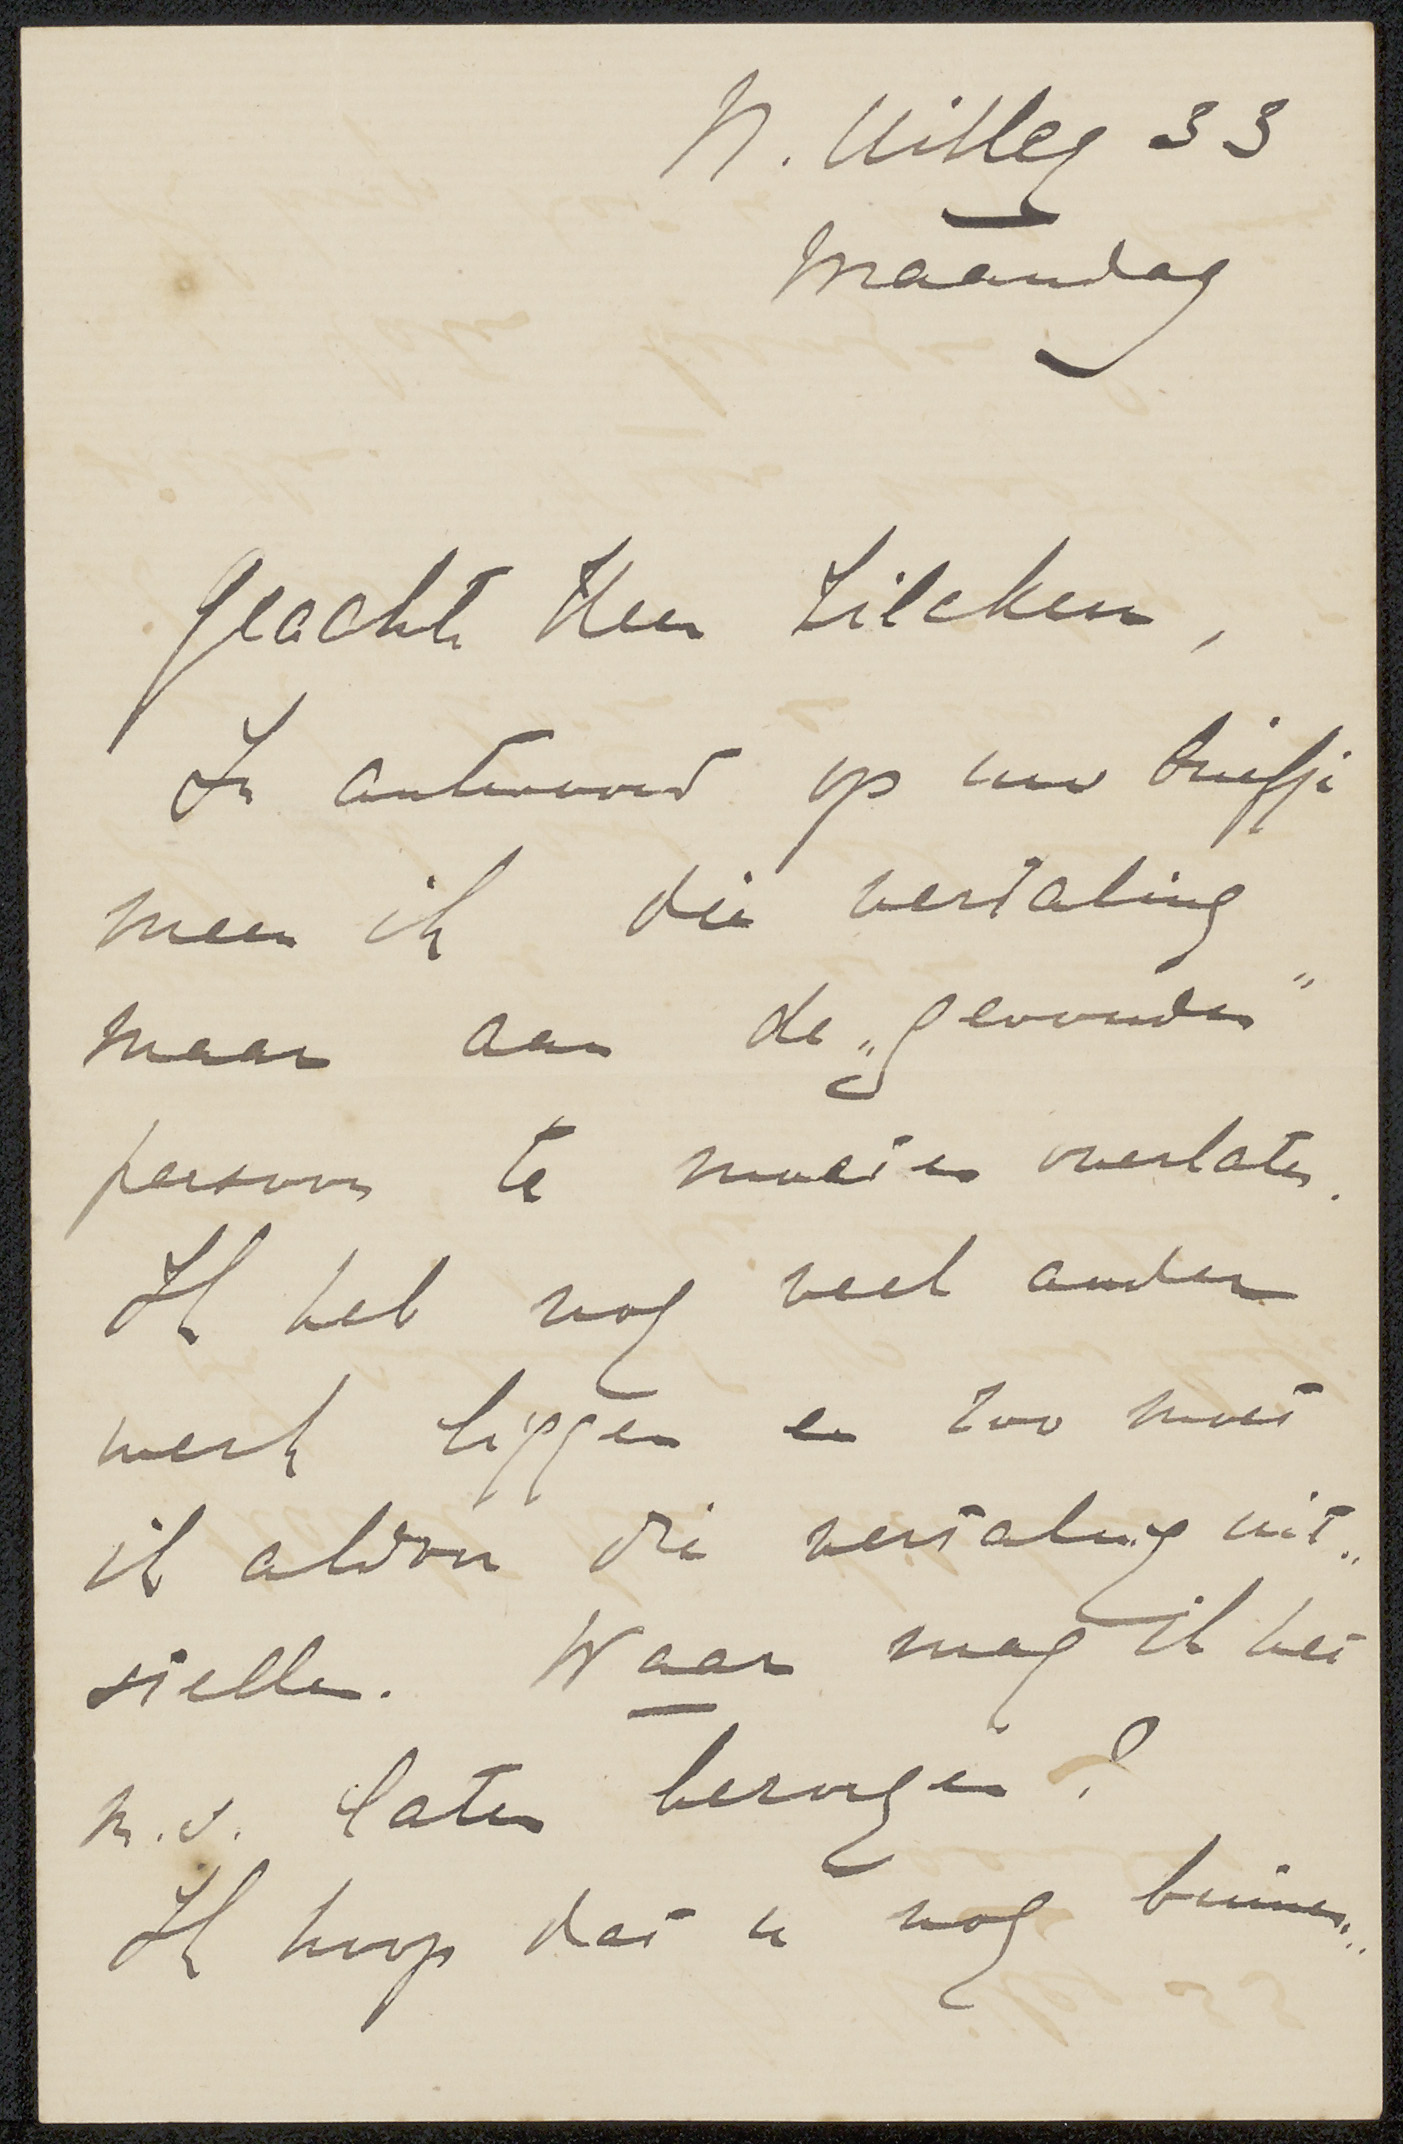 N. Uitleg 33
Maandag
Geachte Heer Zilcken,
In antwoord op uw briefje
meen ik die vertaling
maar aan de „gevonden"
persoon te moeten overlaten.
Ik heb nog veel ander
werk liggen en zoo moet
ik aldoor die vertaling uit„
stellen. Waar mag ik het
m.s. laten bezorgen?
Ik hoop dat u nog binnen„